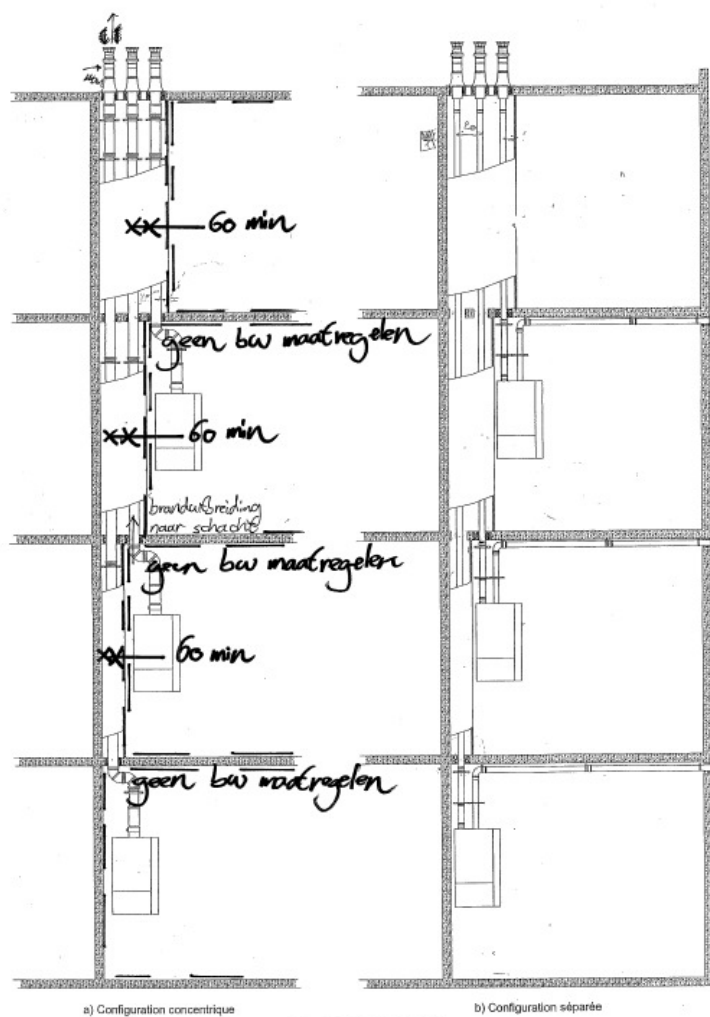 60 min
geen bw maatregelen
60 min
branduitbreiding
naar schacht
geen bw maatregelen
60 min
geen bw maatregelen
a) Configuration concentrique
b) Configuration séparée